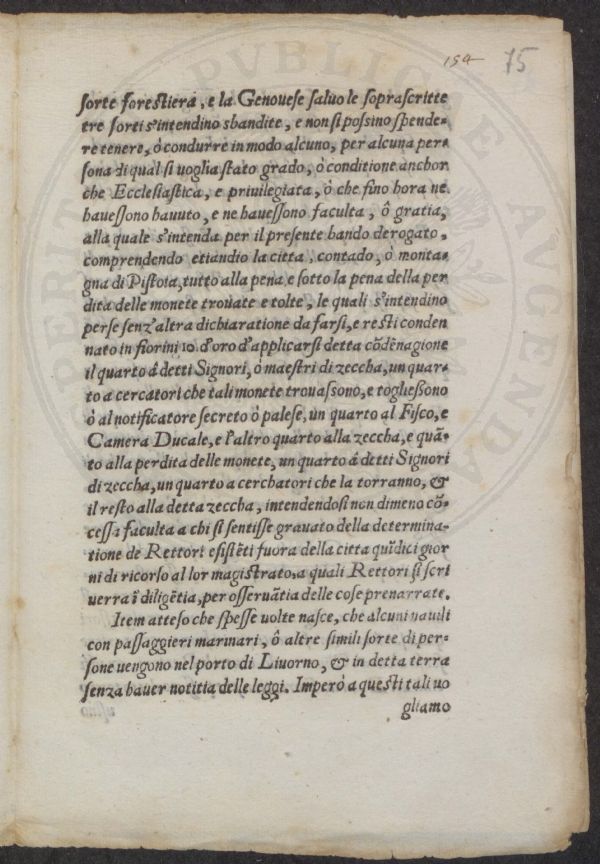 154 75
sorte forestiera, e la Genouese saluo le soprascritte
tre sorti s'intendino sbandite, e non si possino spende-
re tenere, ò condurre in modo alcuno, per alcuna per-
sona di qual si uoglia stato grado, ò conditione anchor
che Ecclesiastica, e privilegiata, ò che fino hora ne
hauessono hauuto, e ne hauessono faculta, ô gratia,
alla quale s'intenda per il presente bando derogato,
comprendendo etiandio la citta, contado, ò monta-
gna di Pistoia, tutto alla pena e sotto la pena della per
dita delle monete trouate e tolte, le quali s'intendino
perse senz'altra dichiaratione da farsi, e resti conden
nato in fiorini 10 d'oro d'applicarsi detta cōdēnagione
il quarto á detti Signori, ò maestri di zeccha, un quar-
to a cercatori che tali monete trouassono, e togliessono
ò al notificatore secreto ò palese, un quarto al Fisco, e
Camera Ducale, e l'altro quarto alla zeccha, e quā-
to alla perdita delle monete, un quarto á detti Signori
di zeccha, un quarto a cerchatori che la torranno, &
il resto alla detta zeccha, intendendosi non dimeno cō-
cessa faculta a chi si sentisse grauato della determina-
tione de Rettori esistēti fuora della citta quīdici gior
ni di ricorso al lor magistrato, a quali Rettori si scri
uerra ī diligētia, per osseruātia delle cose prenarrate.
Item atteso che spesse uolte nasce, che alcuni nauili
con passaggieri marinari, ô altre simili sorte di per-
sone uengono nel porto di Liuorno, & in detta terra
senza hauer notitia delle leggi. Imperó a questi tali uo
gliamo